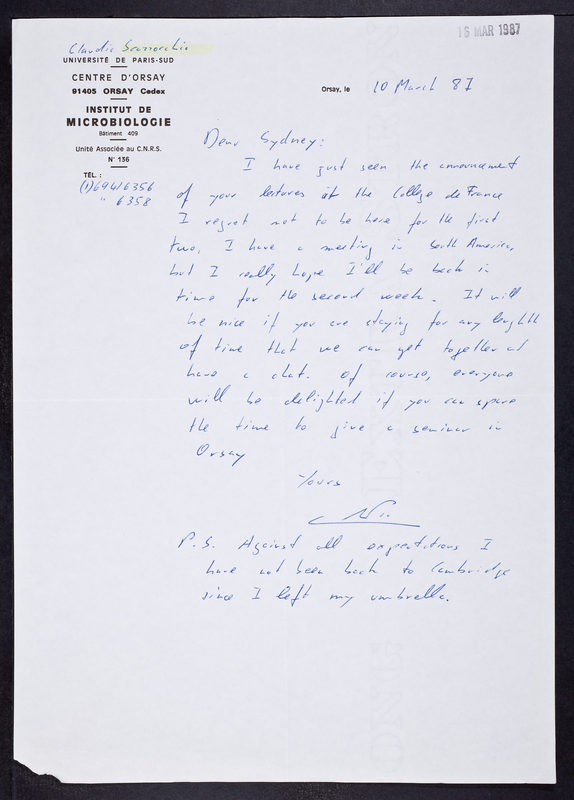 16 MAR 1987
Claudio Scazzocchio
UNIVERSITÉ DE PARIS-SUD
CENTRE D'ORSAY
91405 ORSAY Cedex
INSTITUT DE
MICROBIOLOGIE
Bâtiment 409
Unité Associée au C.N.R.S.
N° 136
TÉL. :
(1)69416356
" 6358
Orsay, le 10 March 87
Dear Sydney:
I have just seen the announcement
of your lectures at the College de France
I regret not to be here for the first
two, I have a meeting in South America,
but I really hope I'll be back in
time for the second week. It will
be nice if you are staying for any lenghth
of time that we can get together and
have a chat. Of course, everyone
will be delighted if you can spare
the time to give a seminar in
Orsay
Yours
P.S. Against all expectations I
have not been back to Cambridge
since I left my umbrella.